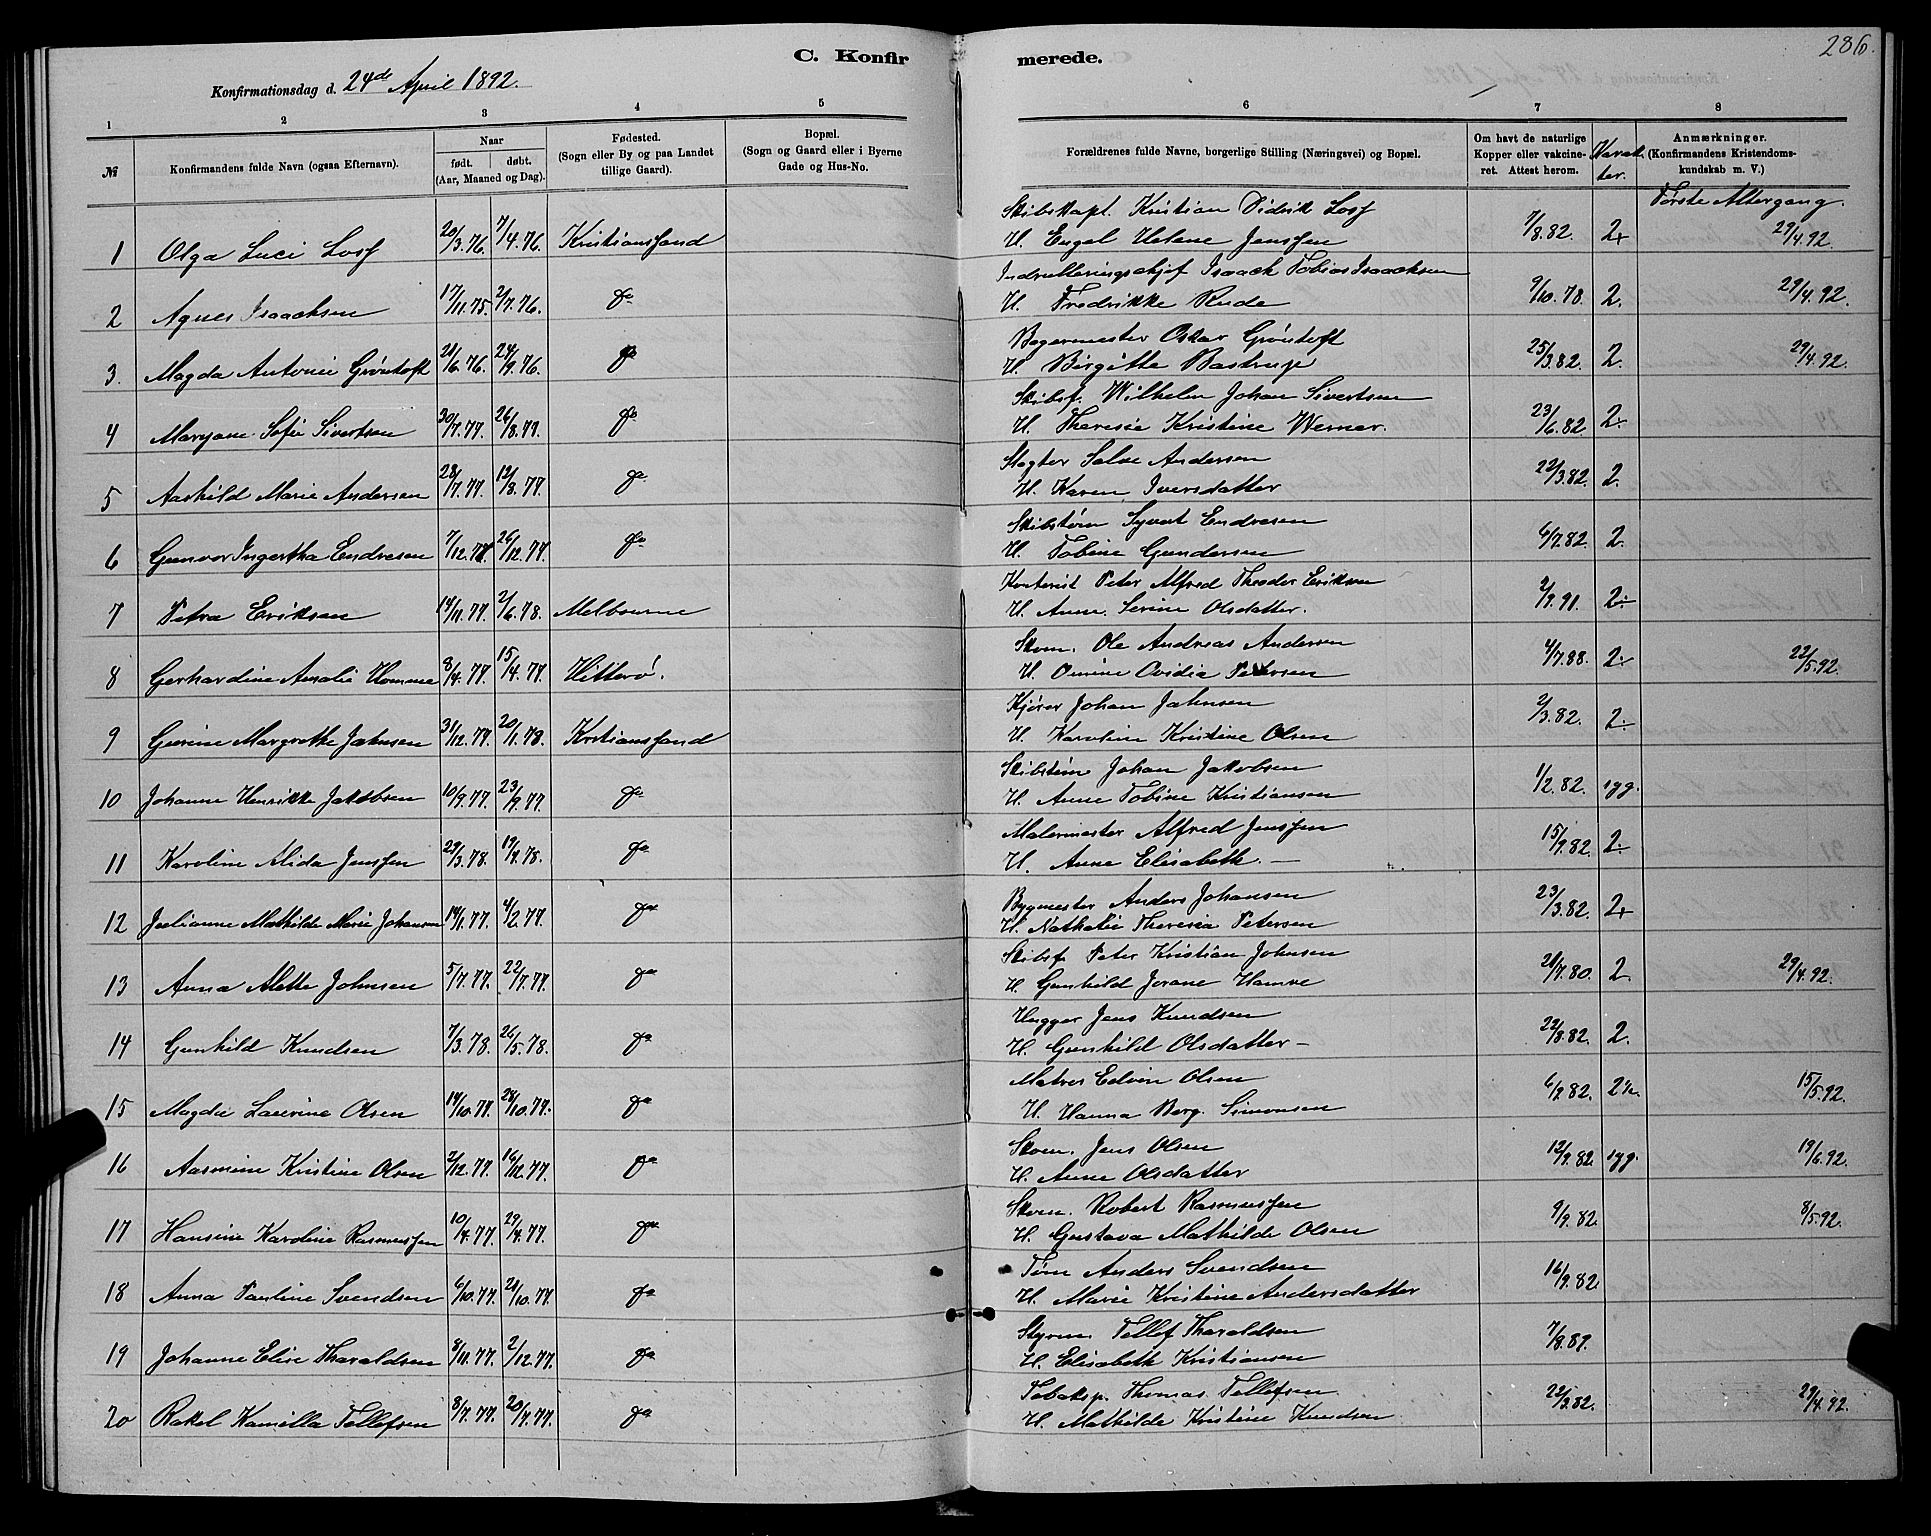 C. Konfir
merede.
286.
Konfirmationsdag d. 24de April 1892.
1 2 3 4 5 6 7 8
№
Konfirmandens fulde Navn (ogsaa Efternavn).
Naar
født. døbt.
(Aar, Maaned og Dag).
Fødested.
(Sogn eller By og paa Landet
tillige Gaard).
Bopæl.
(Sogn og Gaard eller i Byerne
Gade og Hus-No.
Forældrenes fulde Navne, borgerlige Stilling (Næringsvei) og Bopæl.
Om havt de naturlige
Kopper eller vakcine-
ret. Attest herom.
Karak
ter.
Anmærkninger.
(Konfirmandens Kristendoms-
kundskab m. V.)
Første Altergang.
Skibskapt. Kristian Didrik Losf
1 Olga Luci Losf 20/3.76. 7/4.76. Kristianssand H. Engel Helene Jenssen 7/8.82. 2+ 29/4.92.
Indrulleringschef Isaack Tobias Isaachsen
2 Agnes Isaachsen 17/11.75. 2/7.76. do H. Fredrikke Rude 9/10.78. 2. 29/4.92.
Bagermester Oskar Grøstøft
3. Magda Antonie Grøntoft 21/6.76. 24/9.76. do H. Birgitte Bastrup 25/3.82. 2. 29/4.92.
Skibsf. Wilhelm Johan Sivertsen
4 Maryane Sofie Sivertsen 30/7.77. 26/8.77. do H. Theresie Kristine Werner. 23/6.82. 2.
Slagter Salve Andersen
5 Aashild Marie Andersen 28/7.77. 12/8.77. do H. Karen Iversdatter 22/3.82. 2.
Skibstøm Syvert Endresen
6 Gunvor Ingertha Endresen 7/12.77. 26/12.77. do H. Tobine Gundersen 6/7.82. 2.
Kontorist Peter Alfred Theodor Eriksen
7 Petra Eriksen 14/11.77. 2/6.78. Melbourne H. Anne Serine Olsdatter. 2/9.91. 2.
Skom. Ole Andreas Andersen
8 Gerhardine Amalie Homme 8/4.77. 15/4.77. Hitterø. H. Omine Ovidia Petersen 4/7.88. 2. 22/5.92.
Kjører Johan Jahnsen
9 Gurine Margrethe Jahnsen 31/12.77. 20/1.78. Kristianssand H. Karoline Kristine Olsen 2/3.82. 2.
Skibstøm Johan Jakobsen
10 Johanne Henrikke Jakobsen 10/9.77. 23/9.77. do H. Anne Tobine Kristiansen 1/2.82. 1gg.
Malermester Alfred Jenssen
11 Karoline Alida Jenssen 29/3.78. 19/4.78. do H. Anne Elisabeth. — 15/9.82. 2.
Bygmester Anders Johansen
12 Julianne Mathilde Marie Johansen 14/1.77. 4/2.77. do H. Nathalie Theresia Petersen 23/3.82. 2+
Skibsf. Peter Kristian Johnsen
13 Anna Mette Johnsen 5/7.77. 22/7.77. do H. Gunhild Jorane Hamre 21/7.80. 2 29/4.92.
Hugger Jens Knudsen
14 Gunhild Knudsen 7/3.78. 26/5.78. do H. Gunhild Olsdatter — 22/8.82. 2.
Matros Edvin Olsen
15 Magda Laurine Olsen 14/10.77. 28/10.77. do H. Hanna Berg. Simonsen 6/9.82. 2½. 15/5.92.
Skom. Jens Olsen
16 Aasmine Kristine Olsen 2/12.77. 16/12.77. do H. Anne Olsdatter 12/9.82. 1gg. 19/6.92.
Skom. Robert Rasmussen
17 Hansine Karoline Rasmussen 10/4.77. 29/4.77. do H. Gustava Mathilde Olsen 9/9.82. 8/5.92.
Tøm Anders Svendsen
18 Anna Pauline Svendsen 6/10.77. 21/10.77. do H. Marie Kristine Andersdatter 16/9.82.
Styrm. Tellef Tharaldsen
19 Johanne Elise Tharaldsen 8/11.77. 2/12.77. do H. Elisabeth Kristiansen 7/8.89.
Tobaksp. Thomas Tellefsen
20 Rakel Kamilla Tellefsen 8/7.77. 20/7.77. do H. Mathilde Kristine Knudsen 22/3.82. 29/4.92.